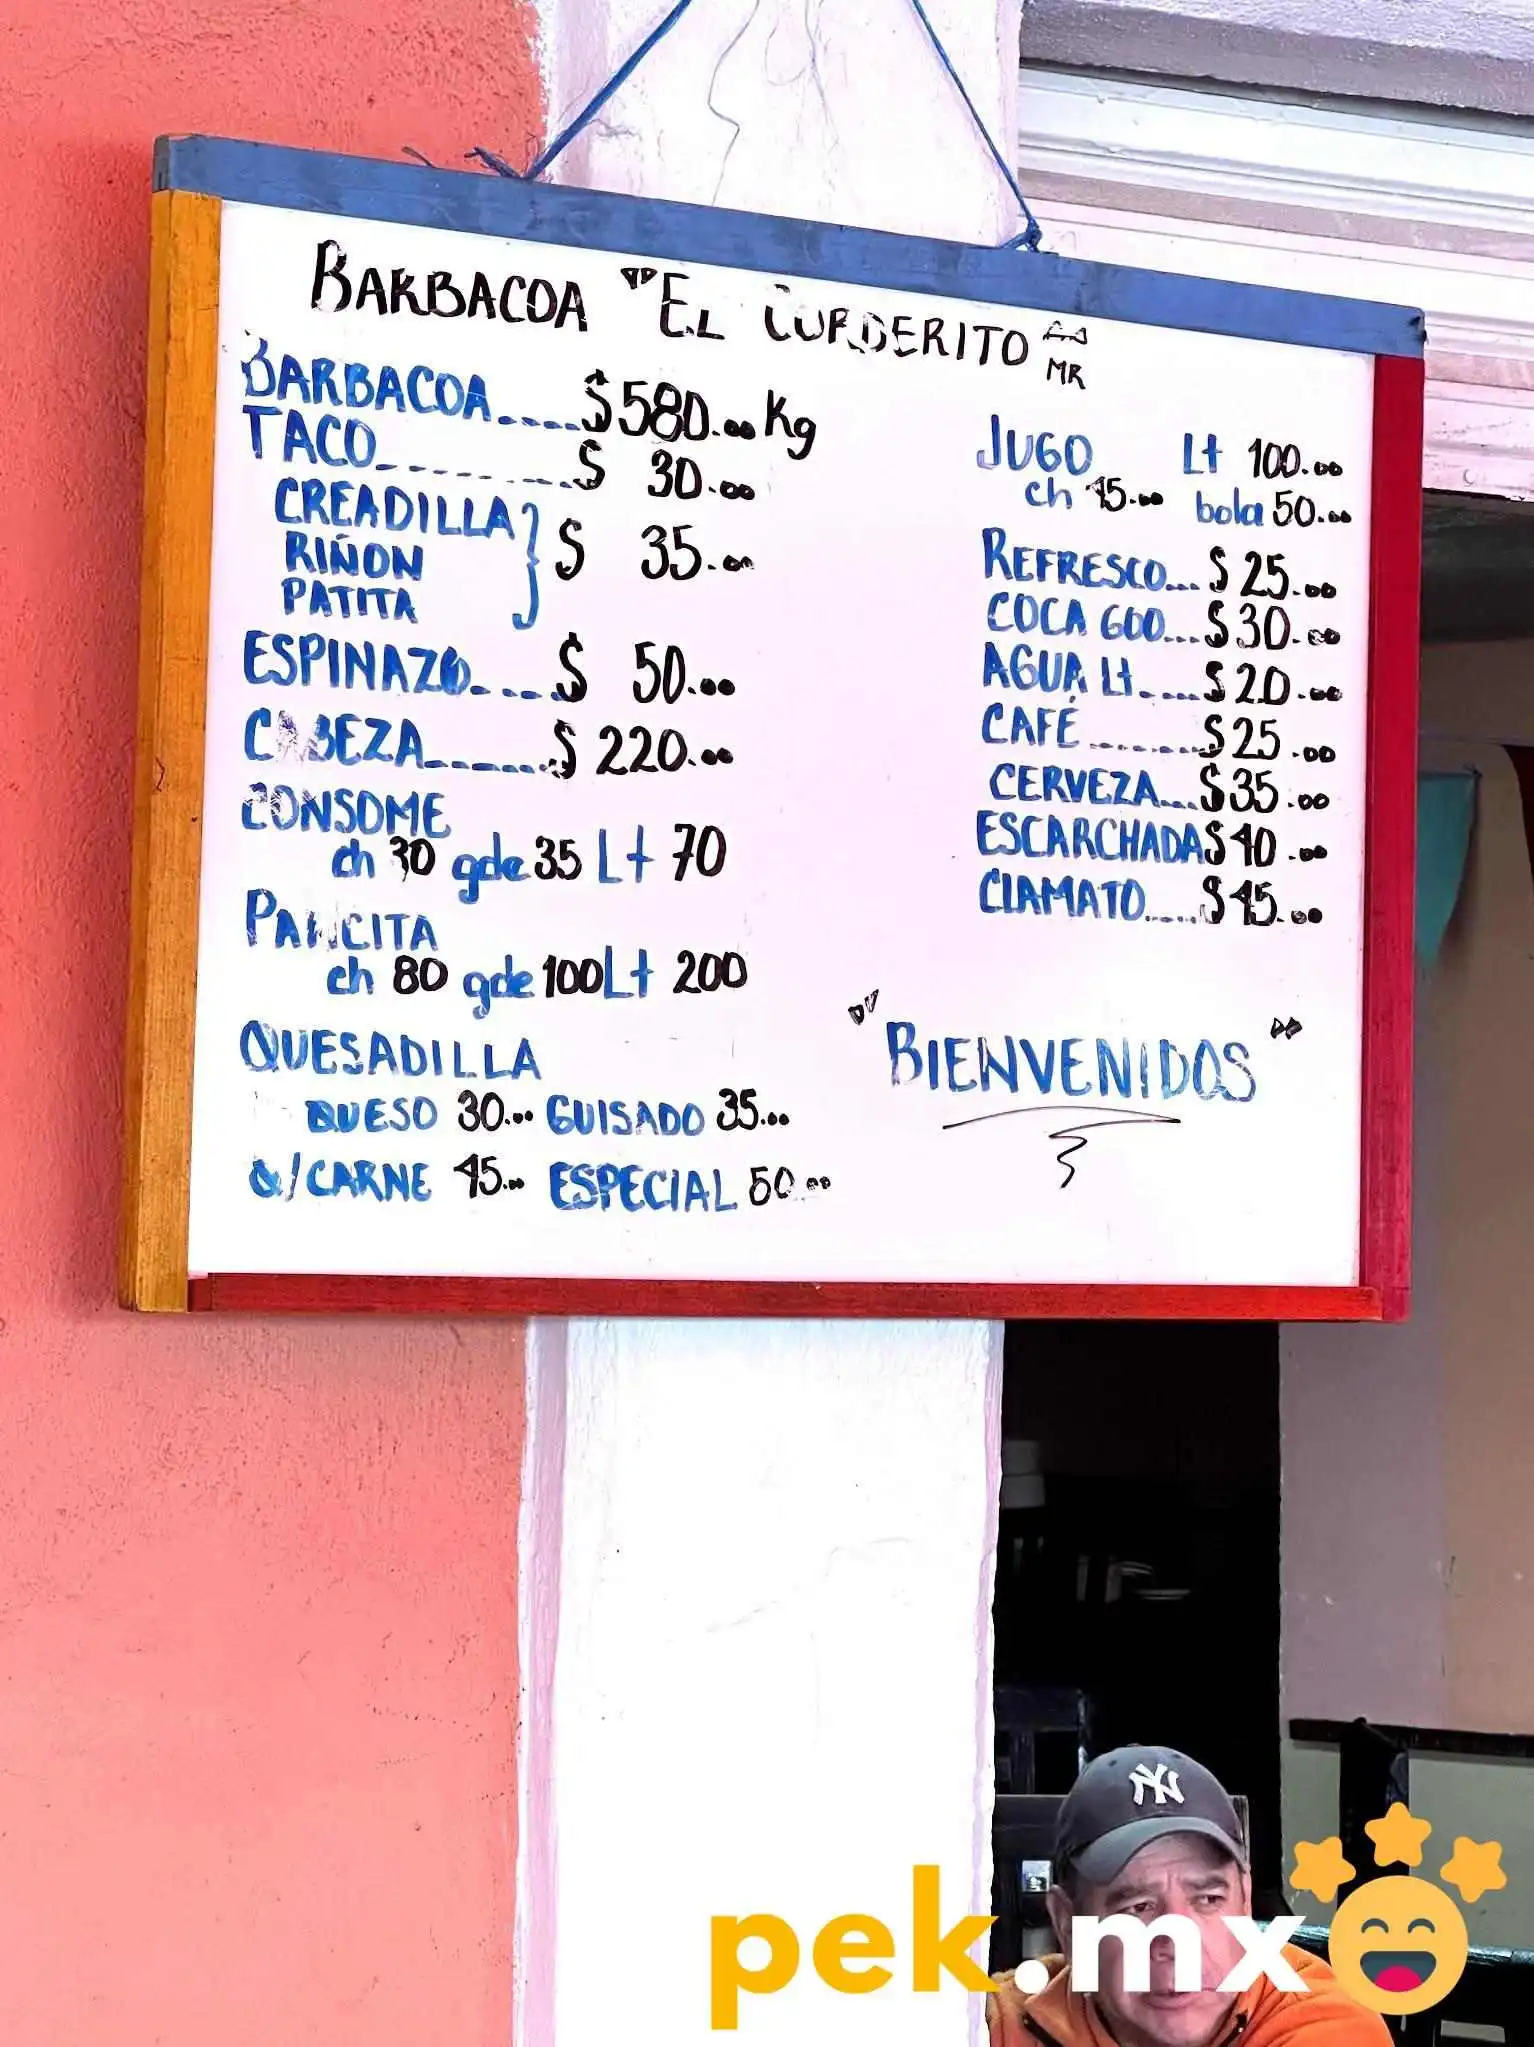 BARBACOA "EL CORDERITO MR
BARBACOA.....$580.00 Kg
TACO.........$ 30.00
CREADILLA
RIÑON
PATITA
} $ 35.00
ESPINAZO.....$ 50.00
CABEZA.......$ 220.00
CONSOME
ch 30 gde 35 Lt 70
PANCITA
ch 80 gde 100 Lt 200
QUESADILLA
QUESO 30.00 GUISADO 35.00
Q/CARNE 45.00 ESPECIAL 50.00
JUGO Lt 100.00
ch 45.00 bola 50.00
REFRESCO...$ 25.00
COCA 600...$ 30.00
AGUA Lt.....$ 20.00
CAFÉ........$ 25.00
CERVEZA....$ 35.00
ESCARCHADA $ 40.00
CLAMATO.....$ 45.00
"BIENVENIDOS"
NY
pek.mx